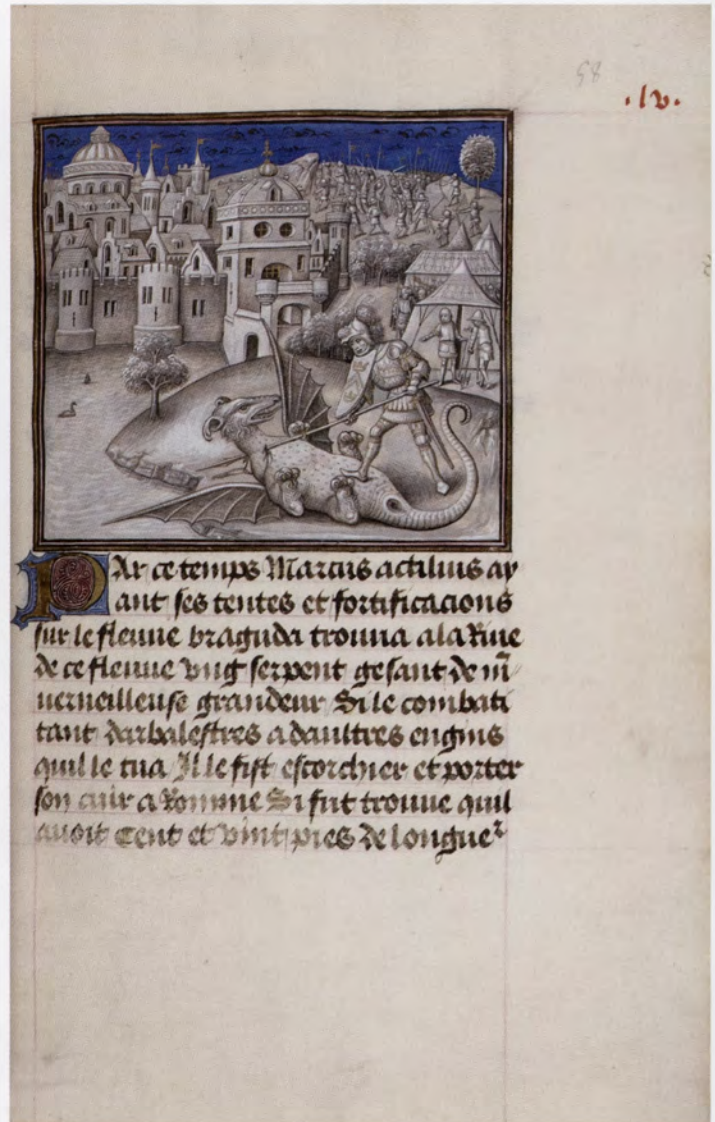 58
.lv.
Par ce temps Marcus actilius ay
ant ses tentes et fortificacions
sur le fleuue braguda trouua a la Riue
de ce fleuue vng serpent gesant de m̄
ueilleuse grandeur Si le combati
tant darbalestres a daultres engins
quil le tua Il le fist escorchier et porter
son cuir a Romme Si fut trouue quil
auoit Cent et vint pies de longueᷣ